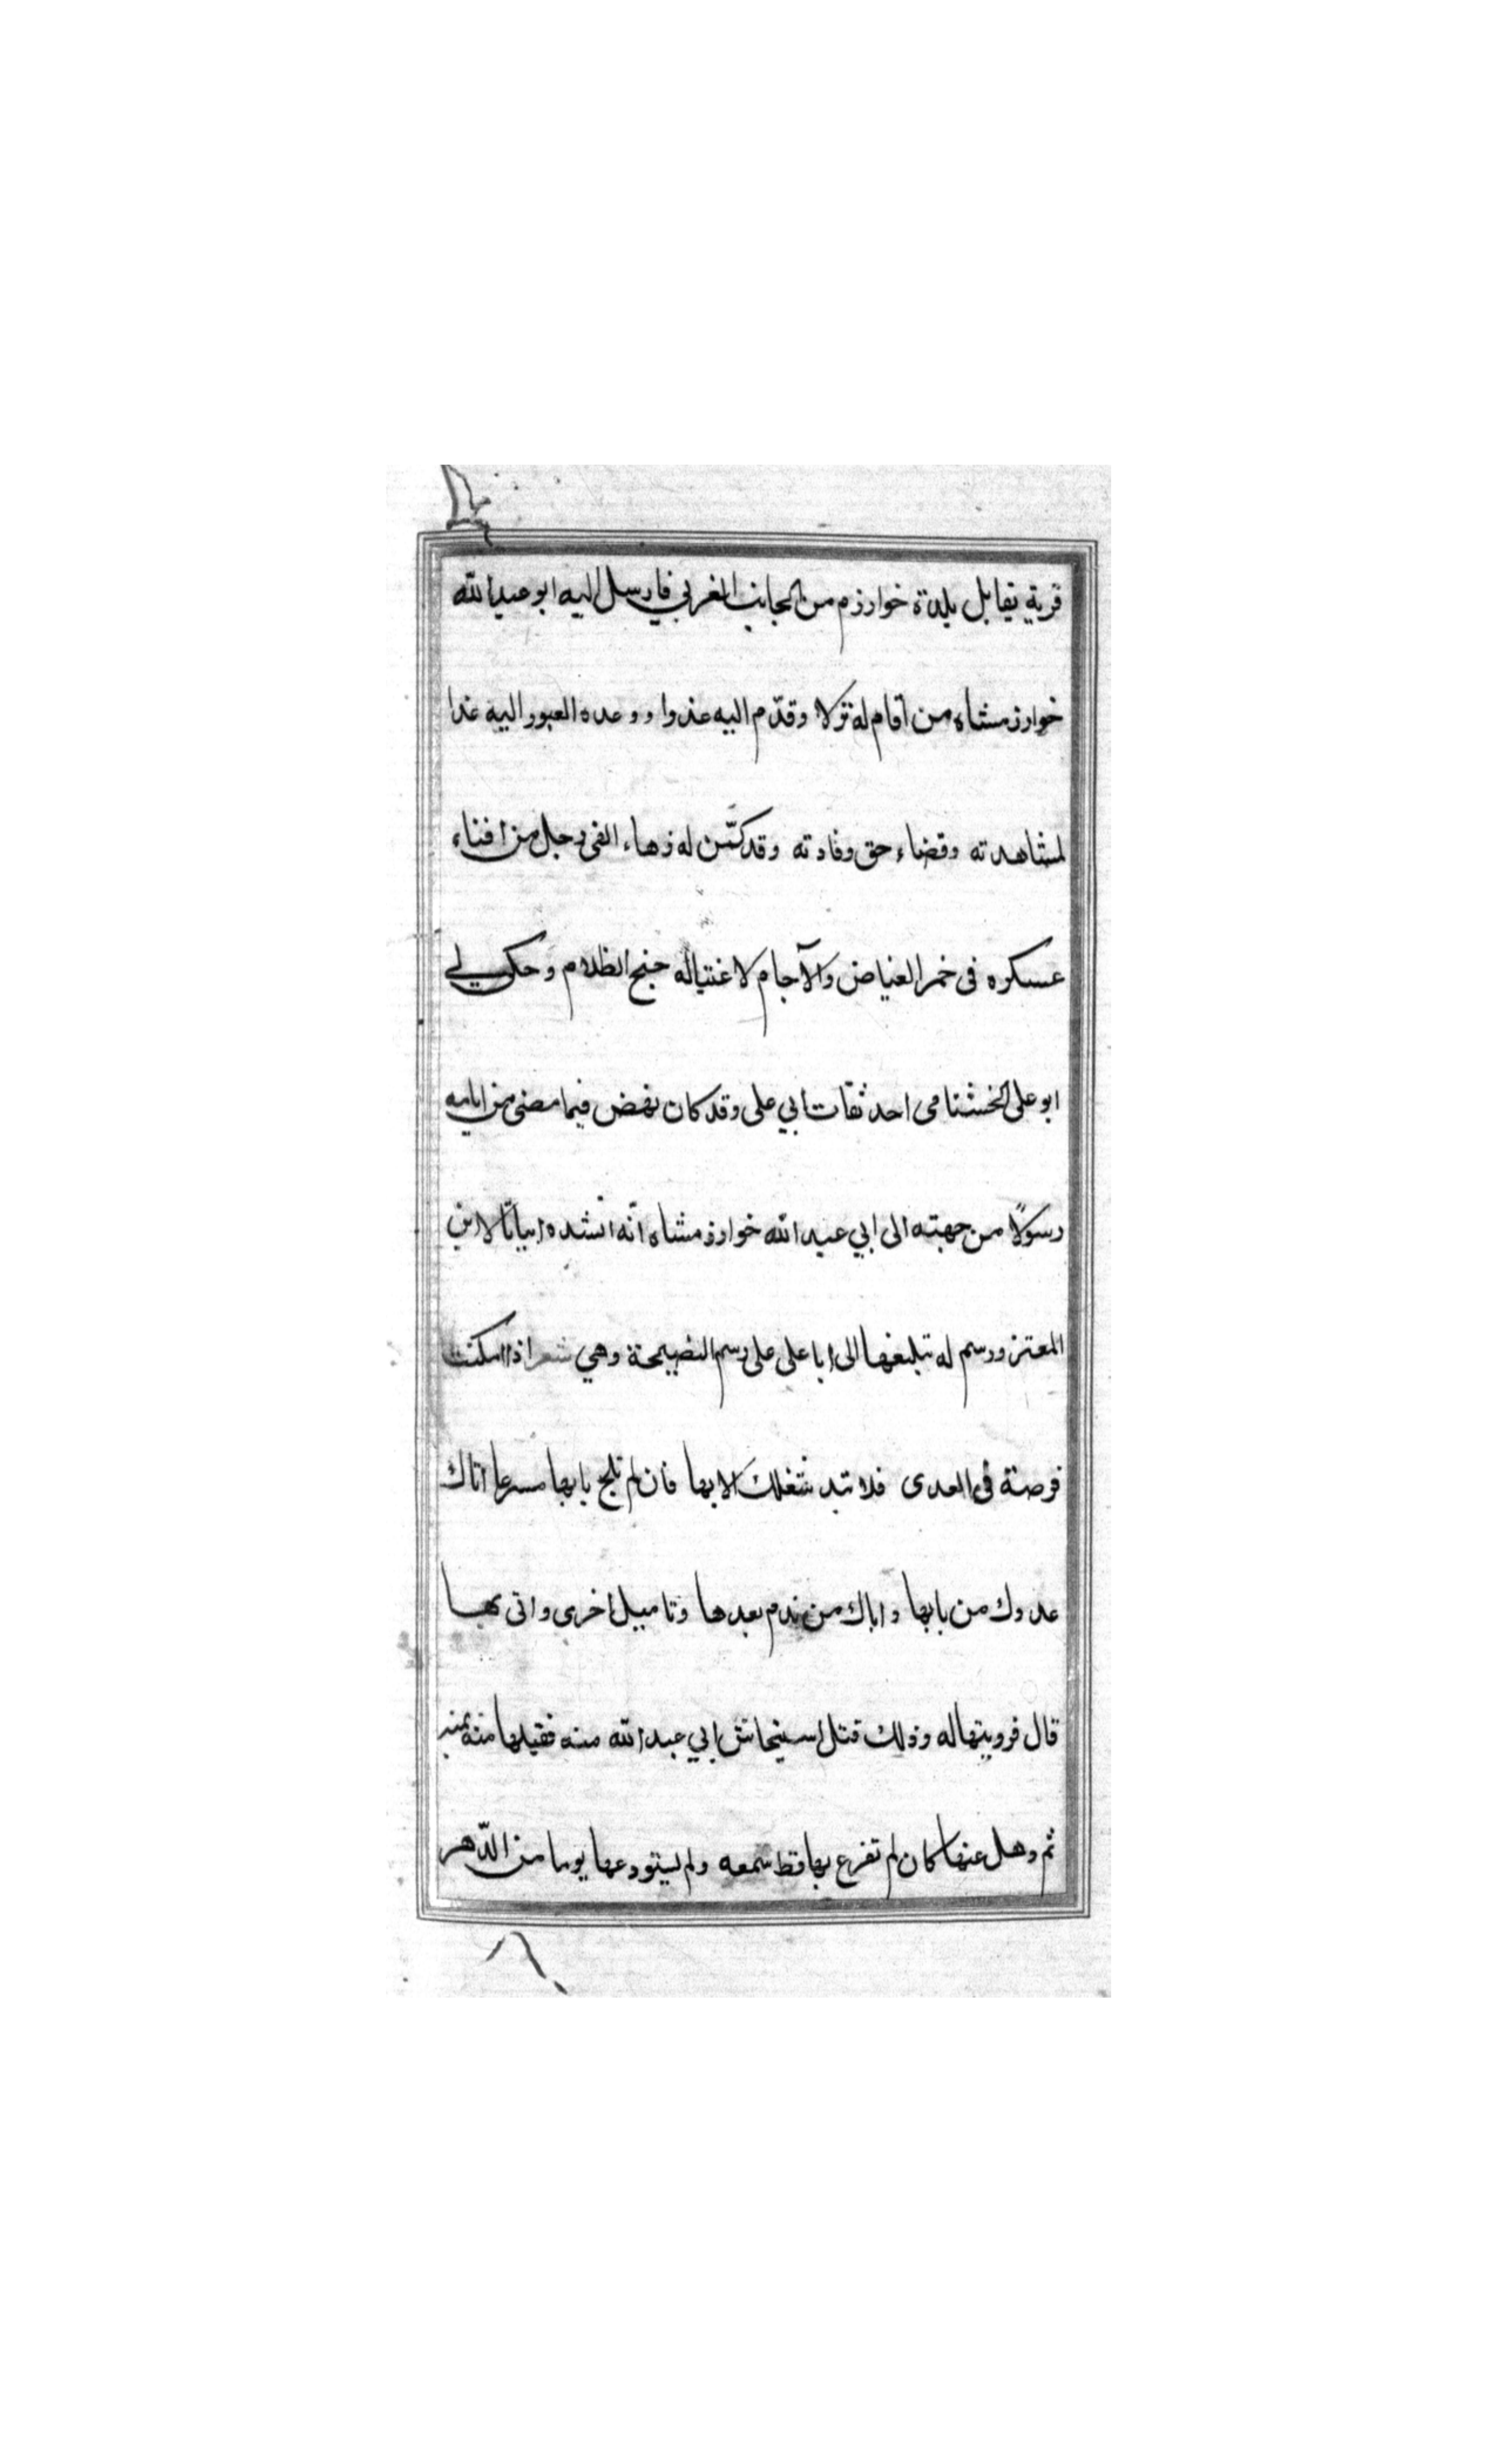 قرية يقابل بلدة خوارزم من الجانب المغربي فارسل اليه ابو عبد الله
خوارزمشاه من اقام له نزلا وقدّم اليه عذرا ووعده العبور اليه غدا
لمشاهدته وقضاء حق وفادته وقد كمّن له زهاء الفى رجل من افناء
عسكره فى خمر الغياض والآجام لاغتياله جنح الظلام وحكى لي
ابو على الخشنامى احد ثقات ابي على وقد كان نهض فيما مضى من ايامه
رسولاً من جهته الى ابي عبد الله خوارزمشاه انّه انشده ابياتا لابن
المعتز ورسم له تبليغها الى ابا على على رسم النصيحة وهي شعر اذا امكنت
فرصة فى العدى فلا تبد شغلك الا بها فان لم تلج بابها مسرعا اتاك
عدوك من بابها واياك من ندم بعدها وتاميل اخرى وانى بها
قال فرويتها له وذلك قبل استيحاش ابي عبد الله منه فقبلها منه
ثم وهل عنها كان لم تقرع بها قط سمعه ولم يستودعها يوما من الدّهر